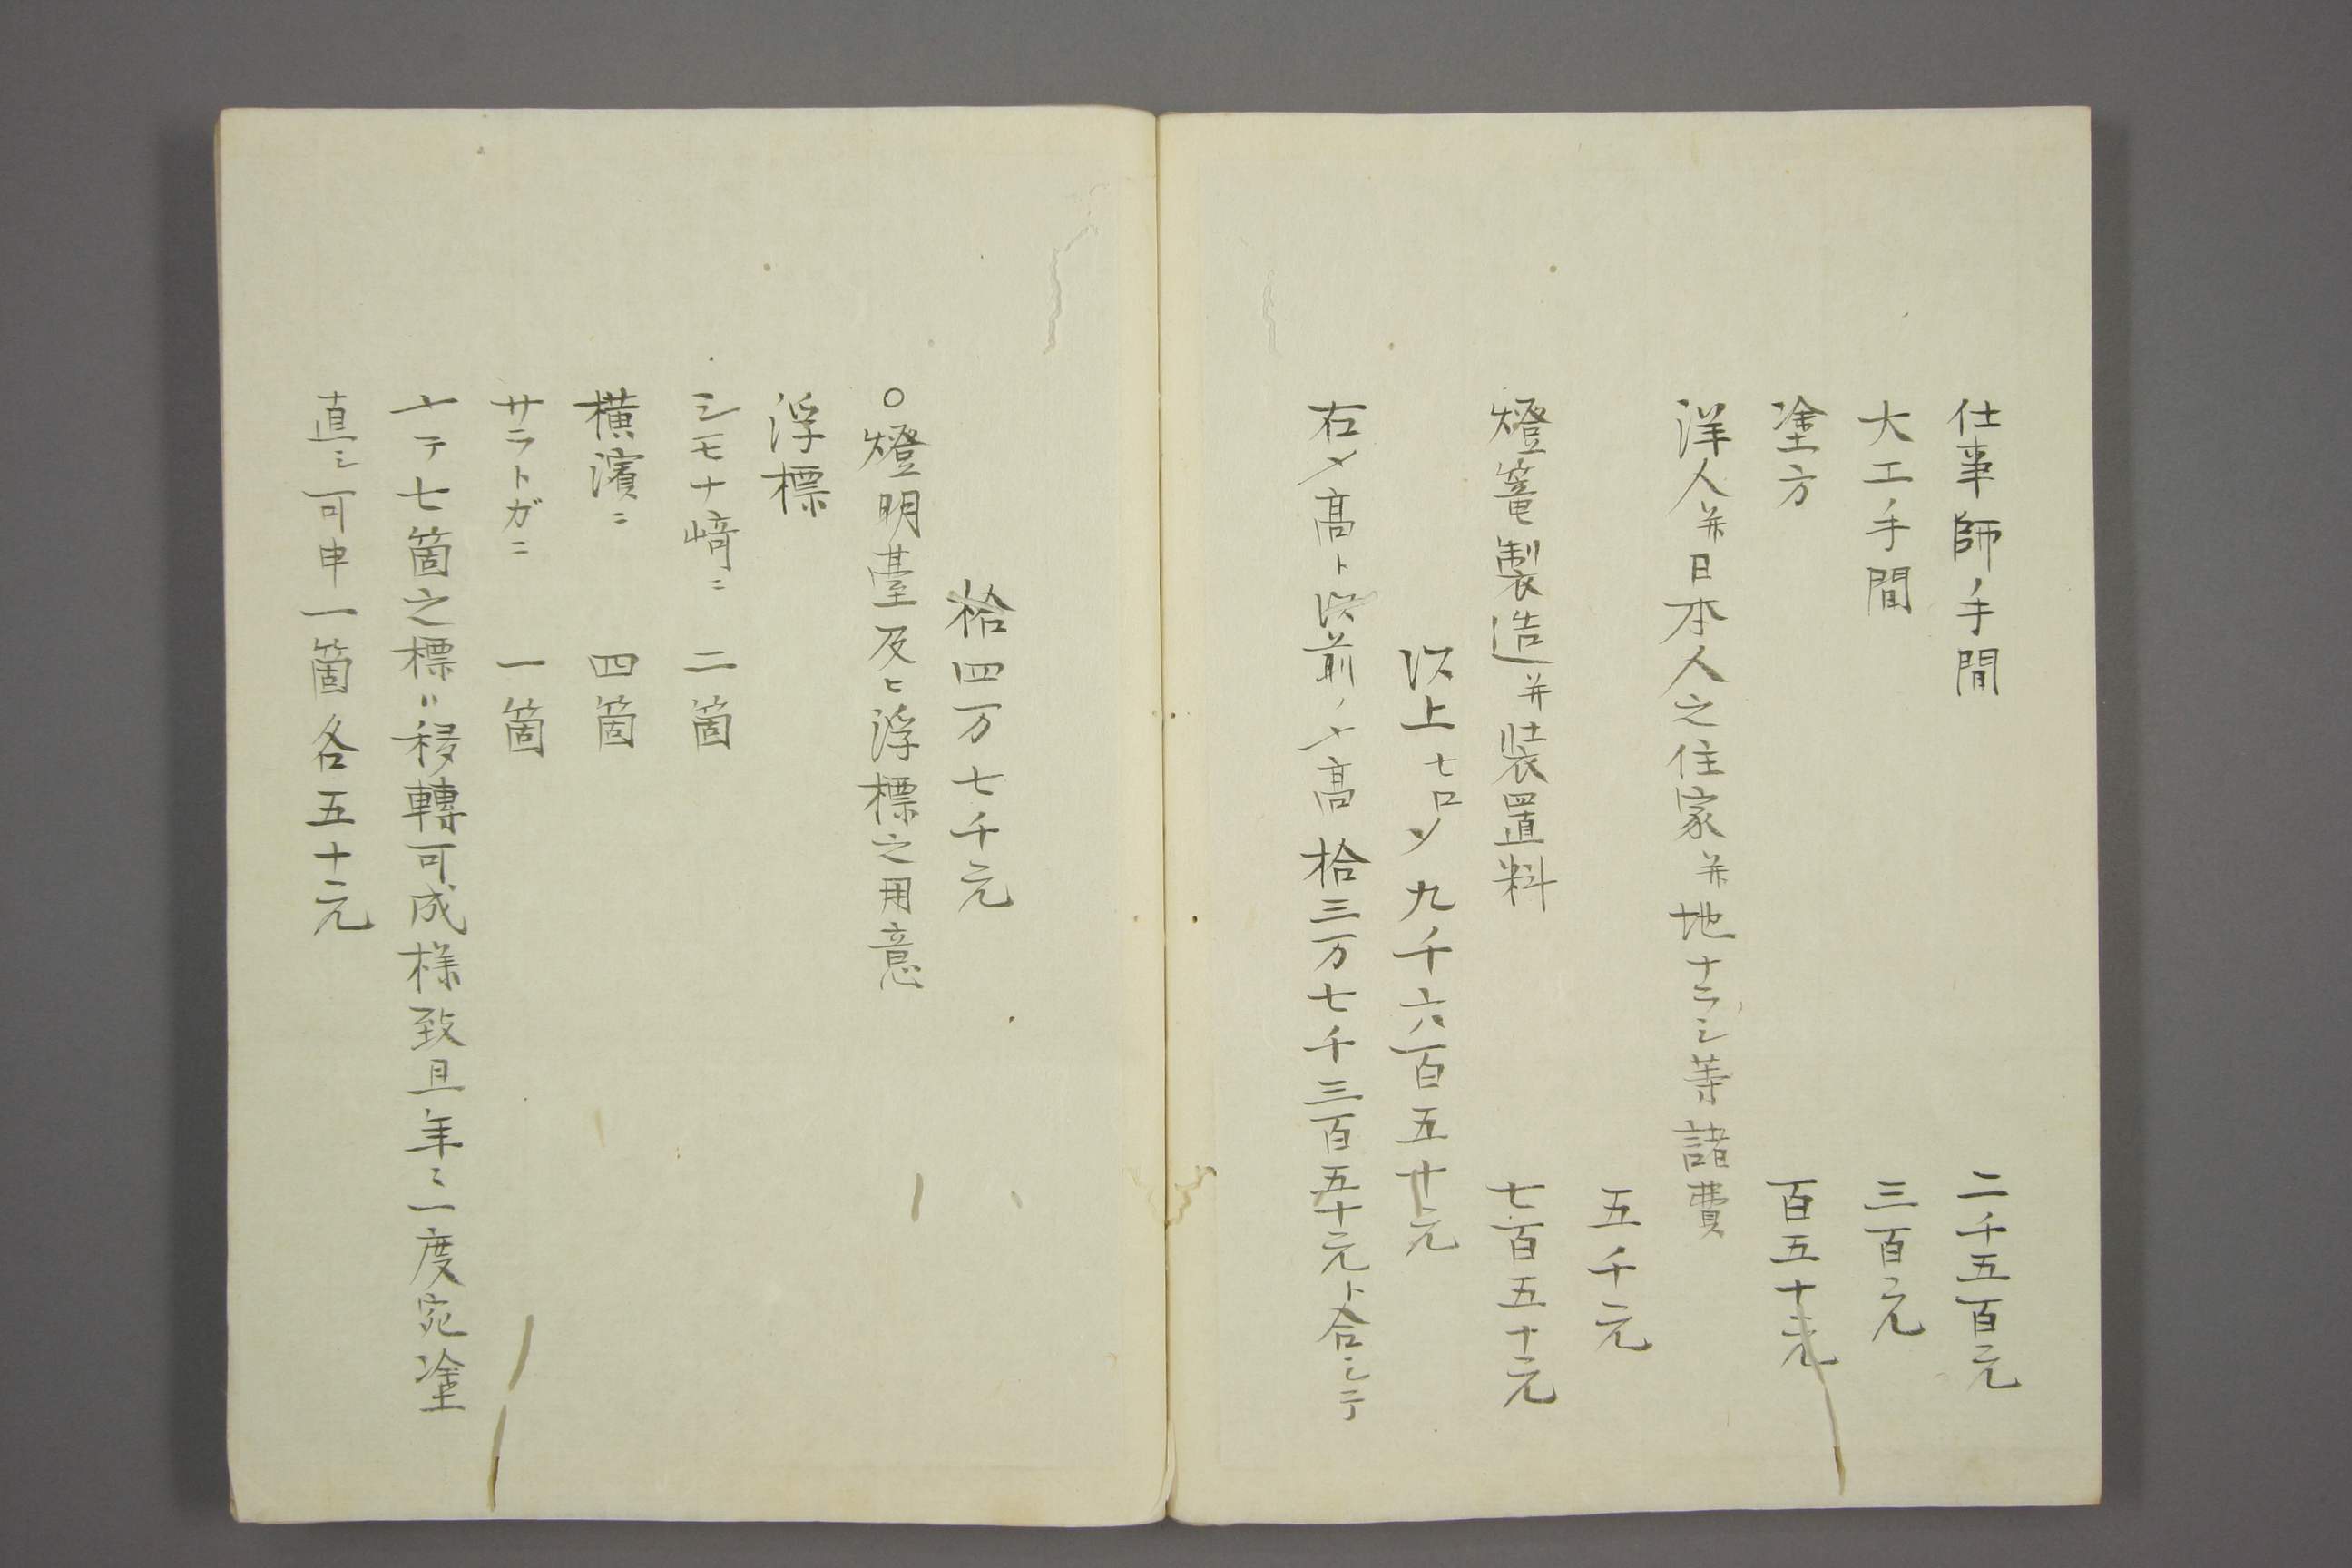 仕事師手間 二千五百元
大工手間 三百元
塗方 百五十元
洋人并日本人之住家并地ナラシ等諸費
五千元
燈篭製造并装置料 七百五十元
以上七口〆九千六百五十元
右〆高ト以前ノ〆高拾三万七千三百五十元ト合シテ
拾四万七千元
○燈明䑓及ヒ浮標之用意
浮標
シモナ﨑ニ 二箇
横濱ニ 四箇
サラトガニ 一箇
〆テ七箇之標ハ移轉可成様致且年ニ一度宛塗
直シ可申一箇各五十元